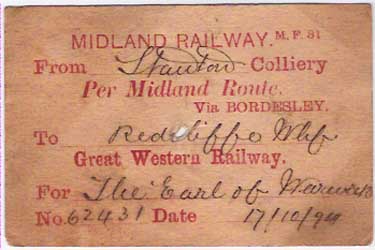 MIDLAND RAILWAY. M.F. 31
From Stanton Colliery
Per Midland Route.
Via BORDESLEY.
To Redcliffe Whf
Great Western Railway.
For The Earl of Warwick
No. 62431 Date 17/10/94